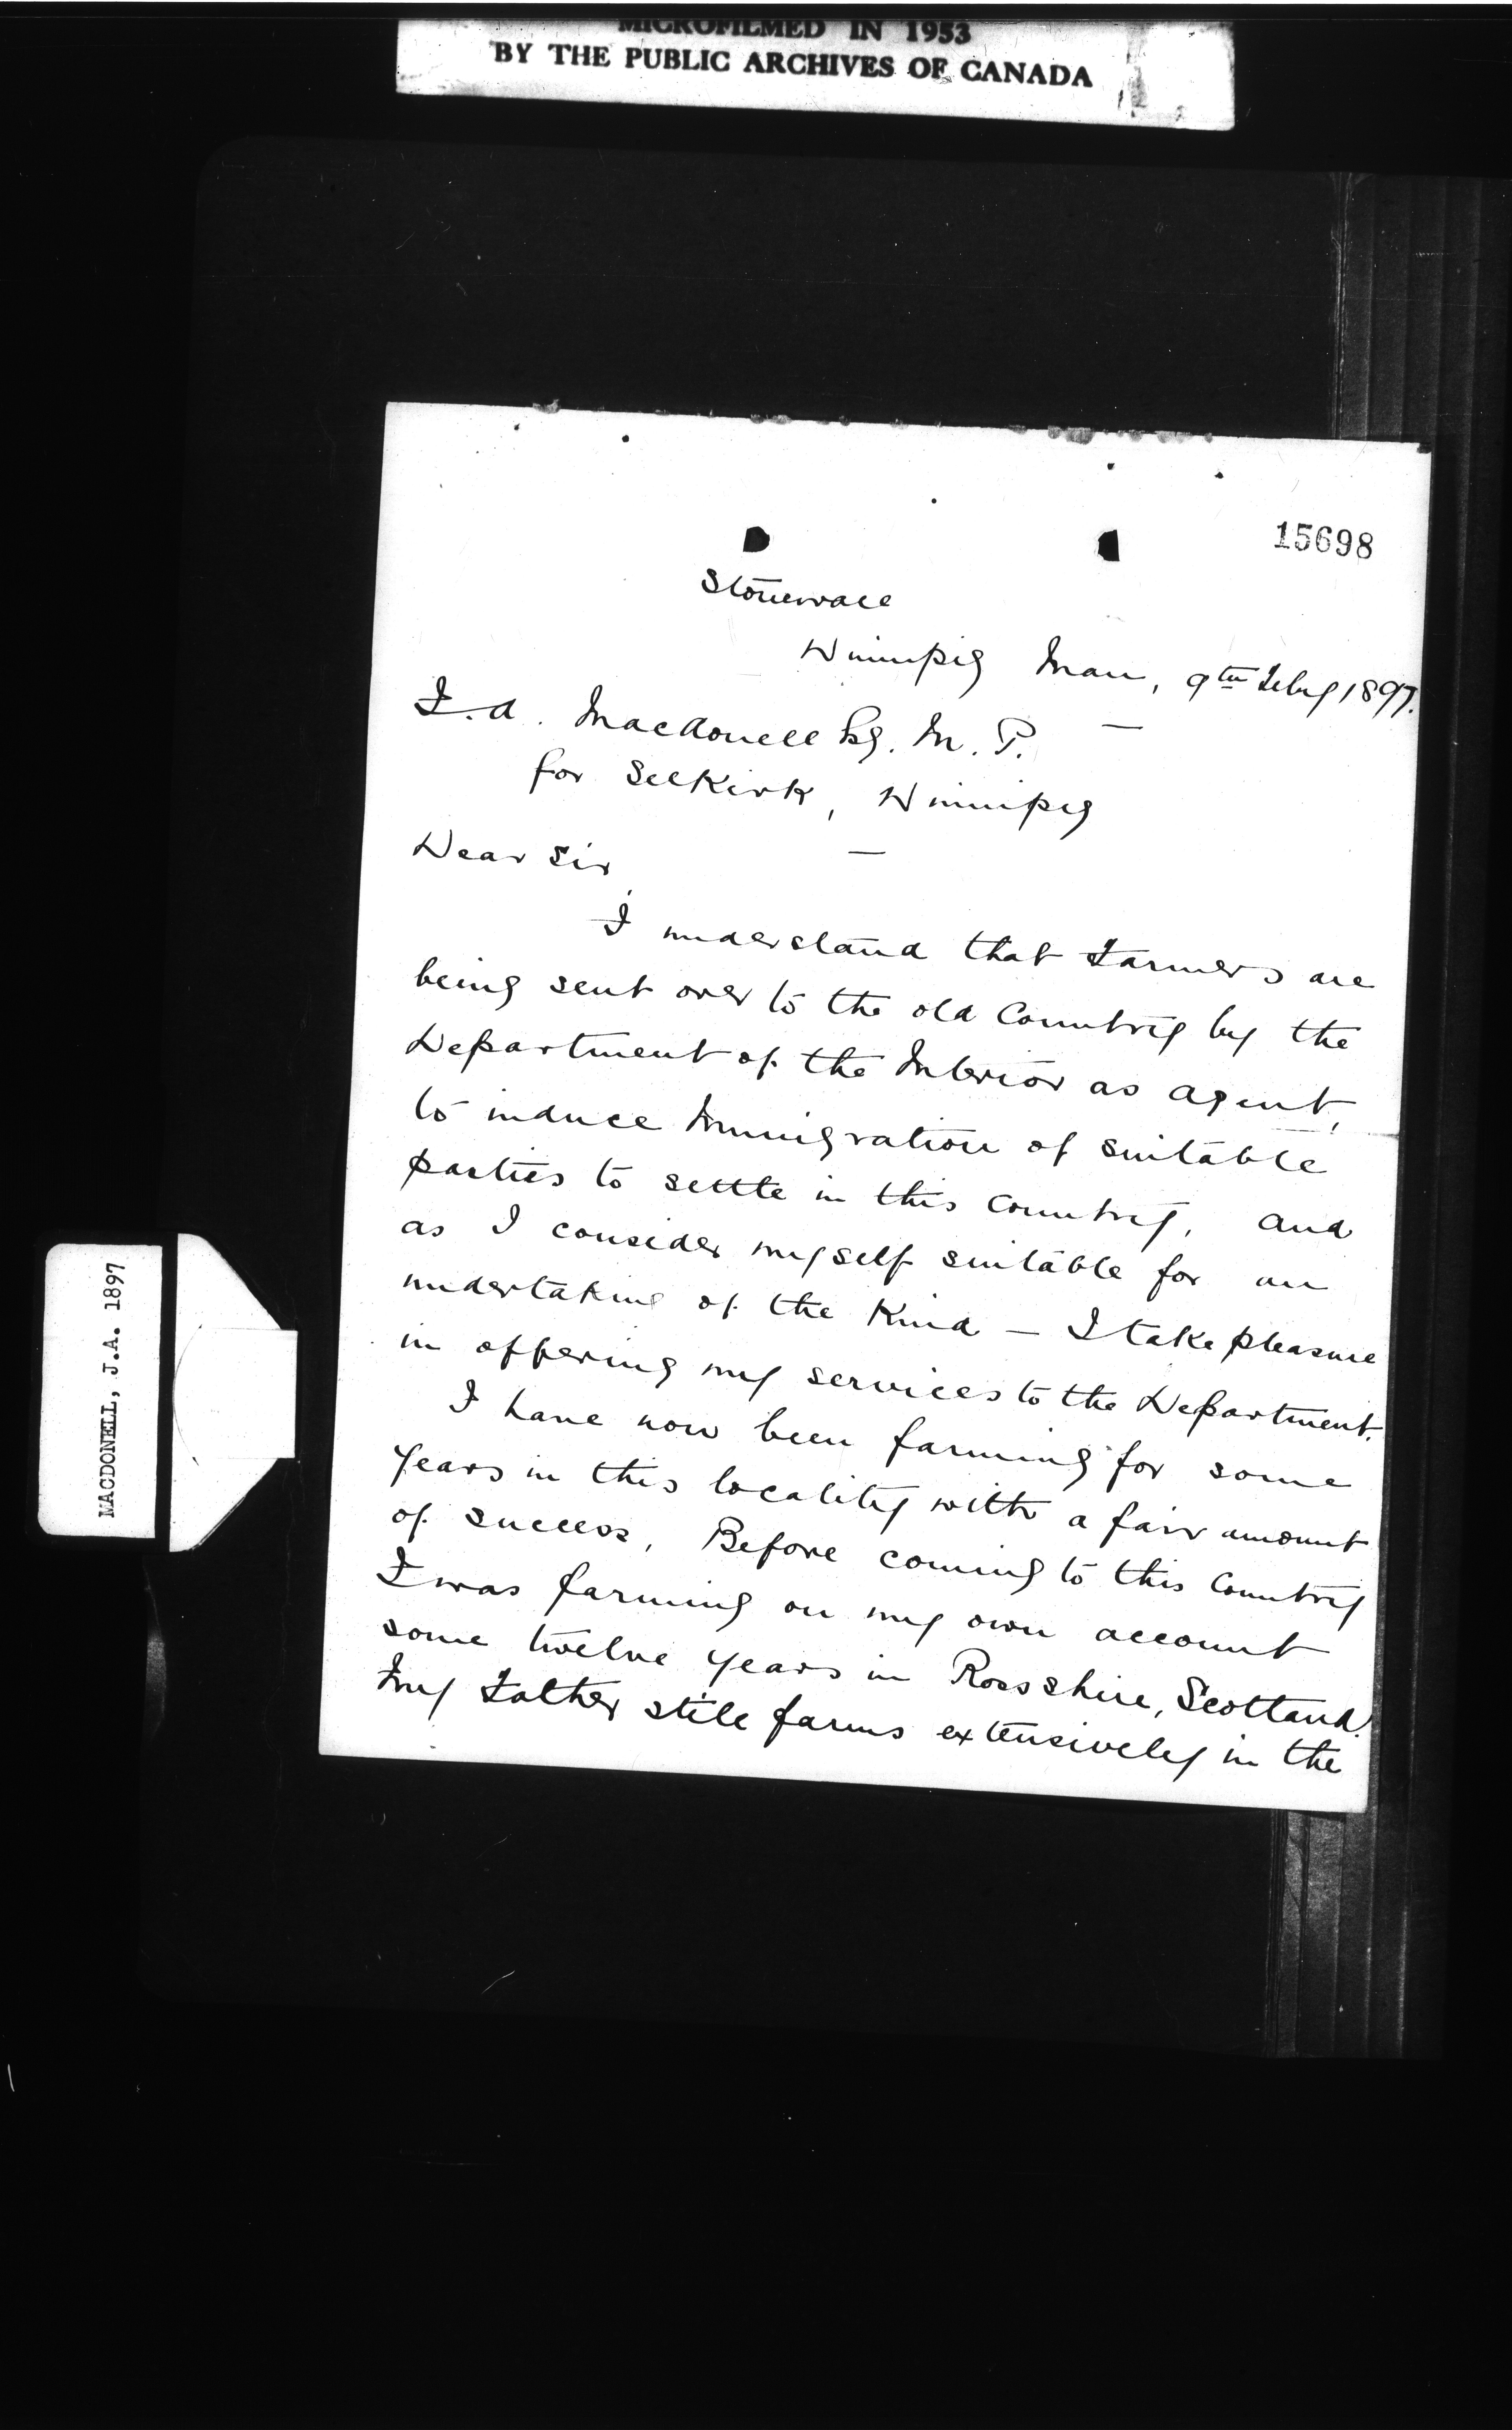 MICROFILMED IN 1953
BY THE PUBLIC ARCHIVES OF CANADA
15698
Stonewall
Winnipeg Man, 9th Feby 1897.
J. A. Macdonell Esq. M. P. —
for Selkirk, Winnipeg
Dear Sir, —
I understand that Farmers are
being sent over to the old Country by the
Department of the Interior as agent,
to induce Immigration of suitable
parties to settle in this country, and
as I consider myself suitable for an
undertaking of the Kind — I take pleasure
in offering my services to the Department.
I have now been farming for some
years in this locality with a fair amount
of success, Before coming to this Country
I was farming on my own account
some twelve years in Rossshire, Scotland.
My Father still farms extensively in the
MACDONELL, J.A. 1897